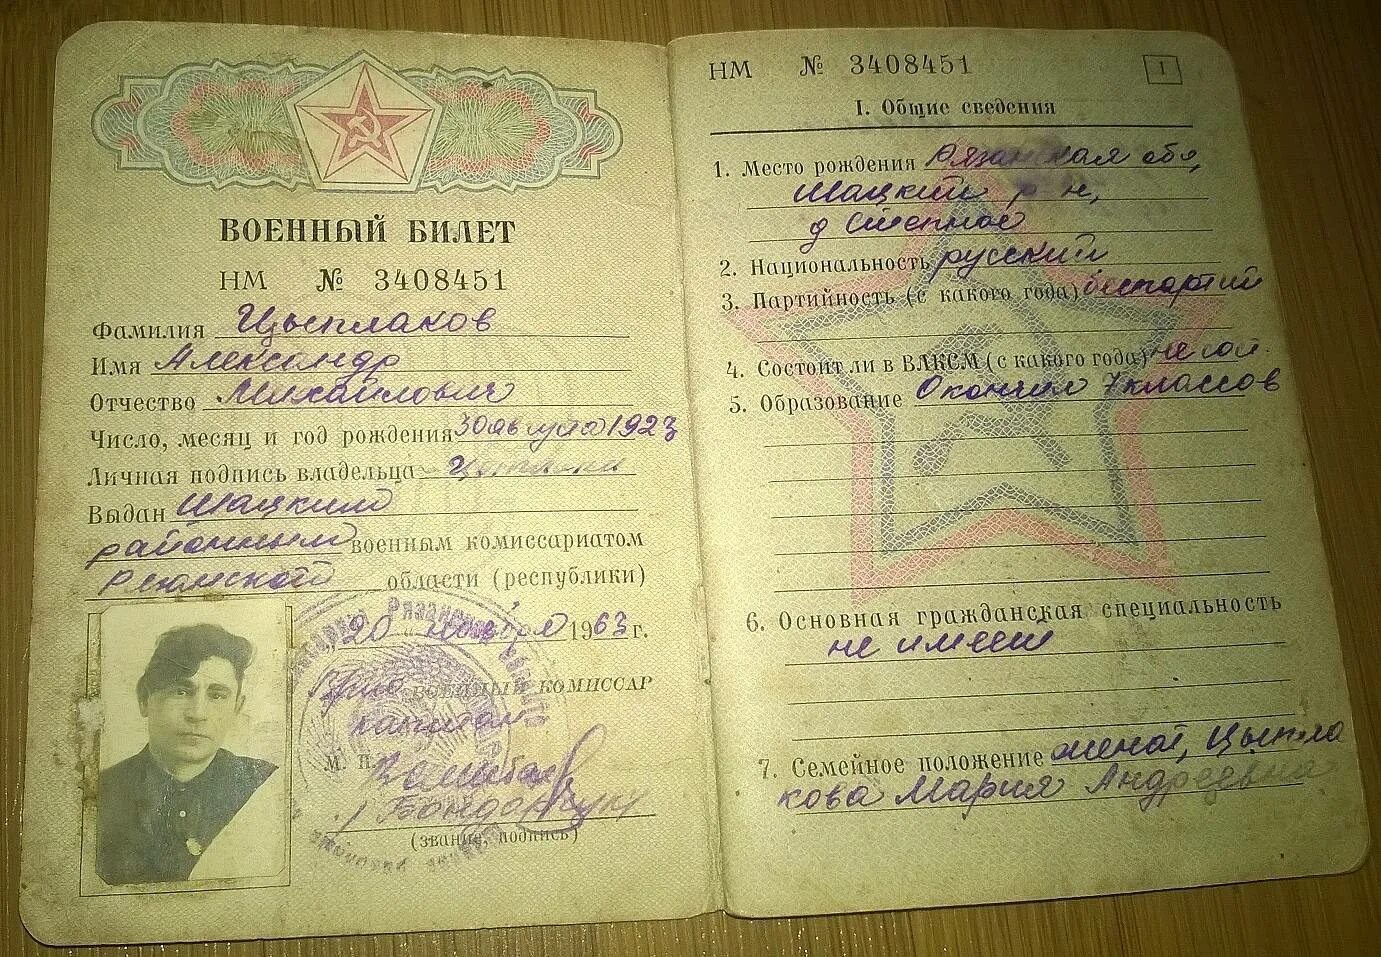 ВОЕННЫЙ БИЛЕТ
НМ № 3408451
Фамилия Цыплаков
Имя Александр
Отчество Михайлович
Число, месяц и год рождения 30 августа 1923
Личная подпись владельца
Выдан Шацким
районным военным комиссариатом
Рязанской области (республики)
20 1963 г.
ВОЕННЫЙ КОМИССАР
капитан
М. П.
(звание, подпись)
НМ № 3408451
1
I. Общие сведения
1. Место рождения Рязанская обл,
Шацкий р-н,
д Степное
2. Национальность русский
3. Партийность (с какого года) беспартий
4. Состоит ли в ВЛКСМ (с какого года) не сост.
5. Образование Окончил 7 классов
6. Основная гражданская специальность
не имеет
7. Семейное положение женат, Цыпла
кова Мария Андреевна